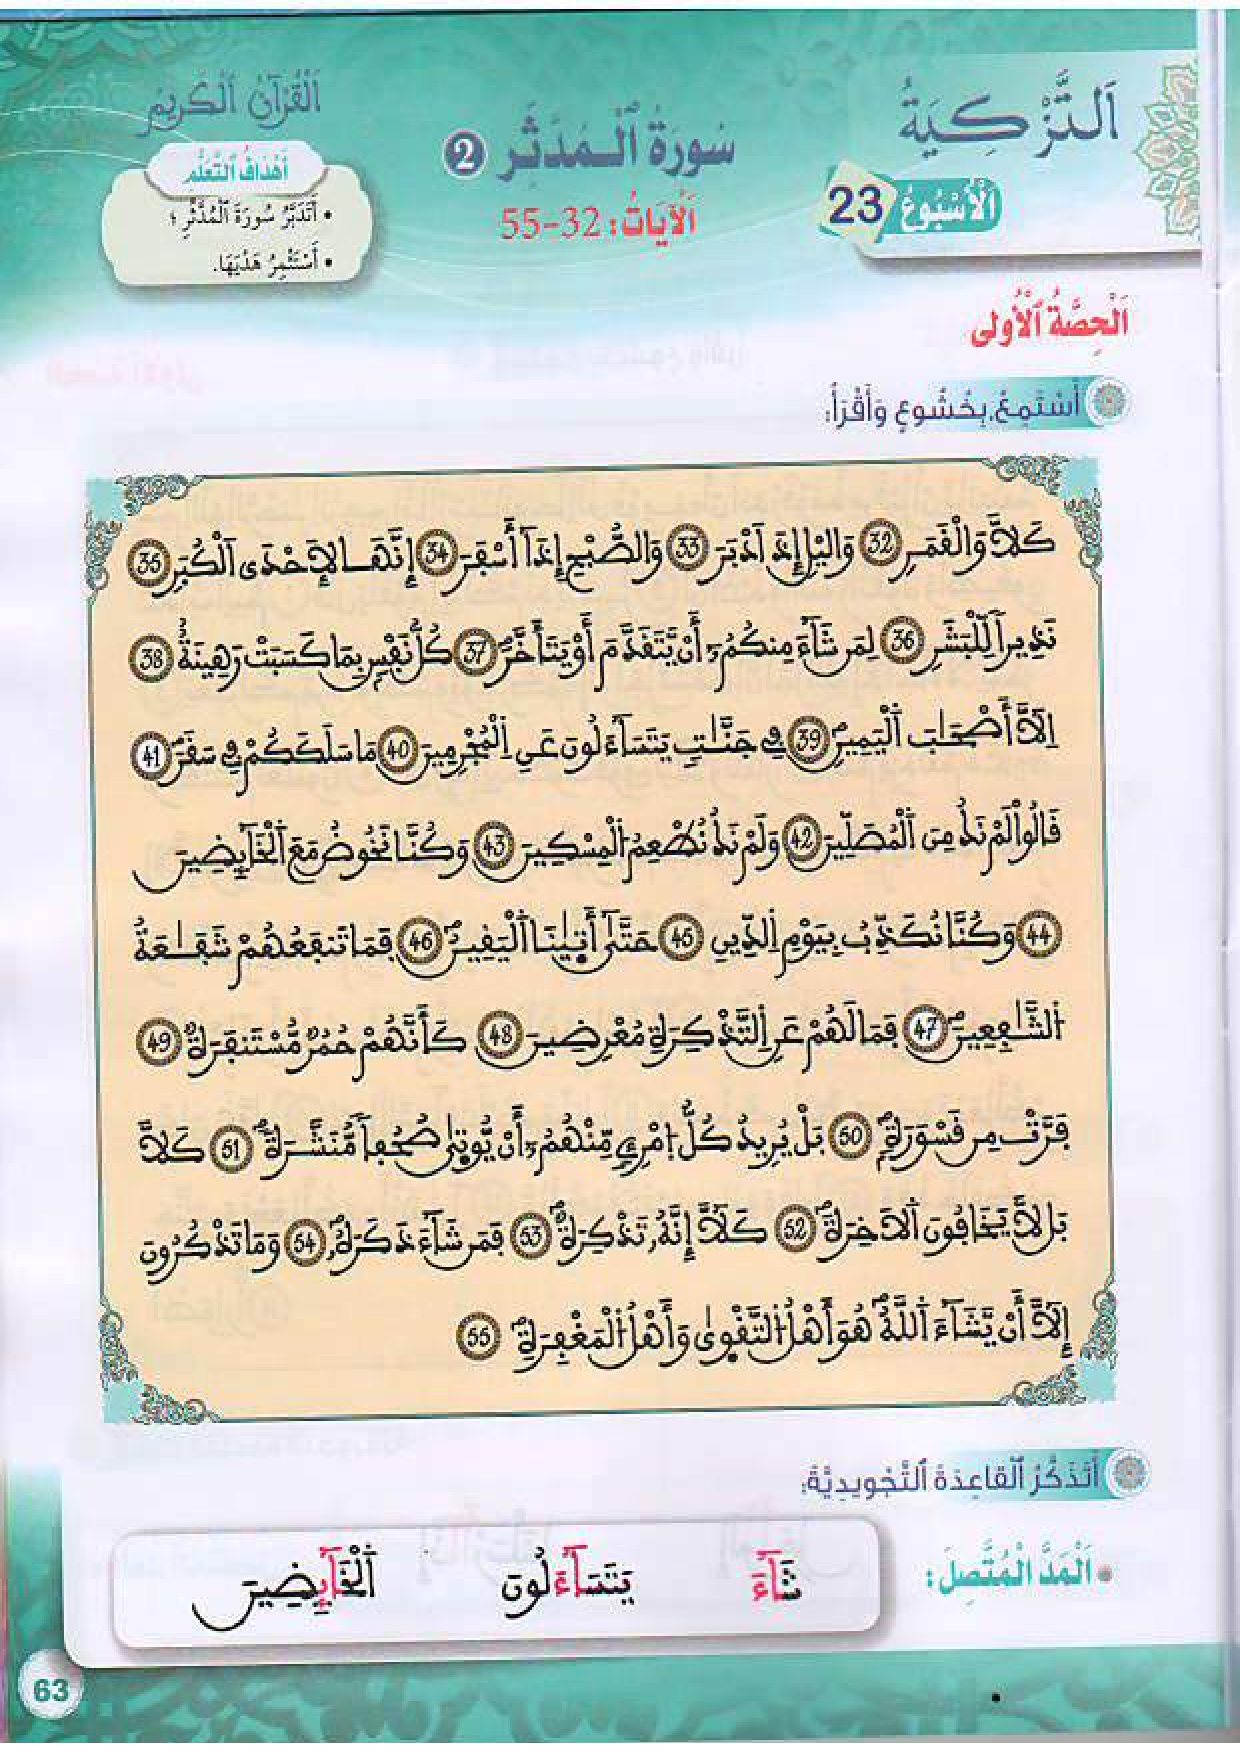 اَلتَّزْكِيَةُ
اَلْأُسْبُوعُ 23
سُورَةُ ٱلْـمُدَّثِّرِ 2
اَلْآيَاتُ: 32-55
اَلْقُرْآنُ ٱلْكَرِيمُ
أَهْدَافُ ٱلتَّعَلُّمِ
• أَتَدَبَّرُ سُورَةَ ٱلْمُدَّثِّرِ ؛
• أَسْتَثْمِرُ هَدْيَهَا.
اَلْحِصَّةُ ٱلْأُولَى
أَسْتَمِعُ بِخُشُوعٍ وَأَقْرَأُ:
كَلَّا وَالْقَمَرِ 32 وَاليْلِ إِذَ اَدْبَرَ 33 وَالصُّبْحِ إِذَآ أَسْفَرَ 34 إِنَّهَا لَإِحْدَى اَلْكُبَرِ 35
نَذِيراً لِّلْبَشَرِ 36 لِمَن شَآءَ مِنكُمُۥٓ أَنْ يَّتَقَدَّمَ أَوْ يَتَأَخَّرَ 37 كُلُّ نَفْسٍ بِمَا كَسَبَتْ رَهِينَةٌ 38
اِلَّآ أَصْحَٰبَ اَلْيَمِينِ 39 فِي جَنَّٰتٍ يَتَسَآءَلُونَ عَنِ اِلْمُجْرِمِينَ 40 مَا سَلَكَكُمْ فِي سَقَرَ 41
قَالُواْ لَمْ نَكُ مِنَ اَلْمُصَلِّينَ 42 وَلَمْ نَكُ نُطْعِمُ اُلْمِسْكِينَ 43 وَكُنَّا نَخُوضُ مَعَ اَلْخَآئِضِينَ
44 وَكُنَّا نُكَذِّبُ بِيَوْمِ اِلدِّينِ 45 حَتَّىٰٓ أَتَىٰنَا اَلْيَقِينُ 46 فَمَا تَنفَعُهُمْ شَفَٰعَةُ
اُلشَّٰفِعِينَ 47 فَمَا لَهُمْ عَنِ اِلتَّذْكِرَةِ مُعْرِضِينَ 48 كَأَنَّهُمْ حُمُرٌ مُّسْتَنفَرَةٌ 49
فَرَّتْ مِن قَسْوَرَةٍ 50 بَلْ يُرِيدُ كُلُّ اُمْرِئٍ مِّنْهُمُۥٓ أَنْ يُّوتَىٰ صُحُفاً مُّنَشَّرَةً 51 كَلَّا
بَل لَّا يَخَافُونَ اَلَاخِرَةَ 52 كَلَّآ إِنَّهُۥ تَذْكِرَةٌ 53 فَمَن شَآءَ ذَكَرَهُۥ 54 وَمَا تَذْكُرُونَ
إِلَّآ أَنْ يَّشَآءَ اَللَّهُ هُوَ أَهْلُ اُلتَّقْوَىٰ وَأَهْلُ اُلْمَغْفِرَةِ 55
أَتَذَكَّرُ ٱلْقَاعِدَةَ ٱلتَّجْوِيدِيَّةَ:
• اَلْمَدُّ الْمُتَّصِلُ:
شَآءَ يَتَسَآءَلُونَ اَلْخَآئِضِينَ
63